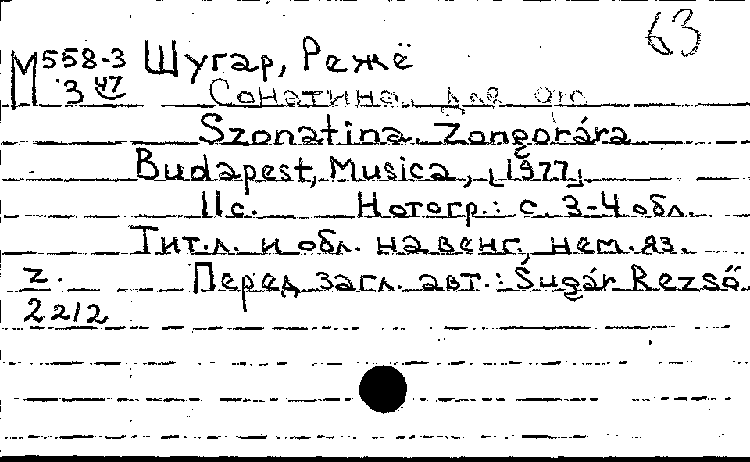 63
М 558-3 Шугар, Режё
3 47 Сонатина. Для фп
Szonatina. Zongorára
Budapest, Musica, [1977].
11с. Нотогр.: с. 3-4 обл.
Тит.л. и обл. на венг., нем. яз.
Z. Перед загл. авт.: Sugár Rezső.
2212